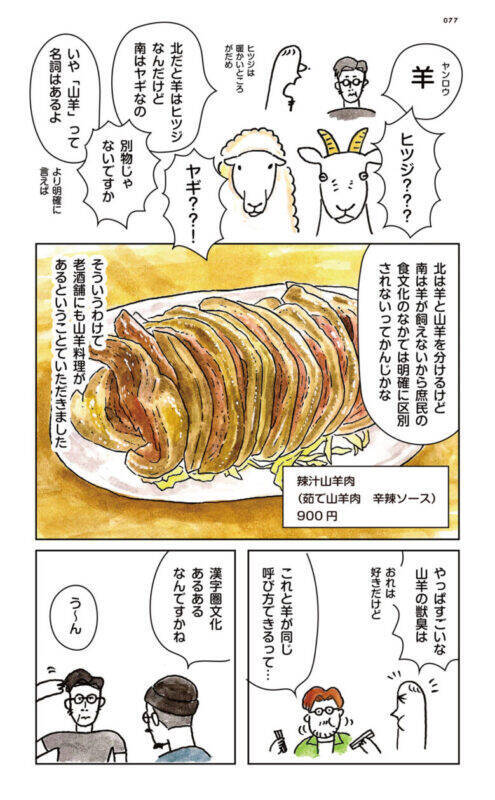 077
ヤンロウ
羊
ヒツジ???
ヒツジは
暖かいところ
がだめ
北だと羊はヒツジ
なんだけど
南はヤギなの
ヤギ??!
別物じゃ
ないですか
いや「山羊」って
名詞はあるよ
より明確に
言えば
北は羊と山羊を分けるけど
南は羊が飼えないから庶民の
食文化のなかでは明確に区別
されないってかんじかな
そういうわけで
老酒舗にも山羊料理が
あるということでいただきました
辣汁山羊肉
(茹で山羊肉 辛辣ソース)
900円
やっぱすごいな
山羊の獣臭は
おれは
好きだけど
これと羊が同じ
呼び方できるって…
漢字圏文化
あるある
なんですかね
う〜ん